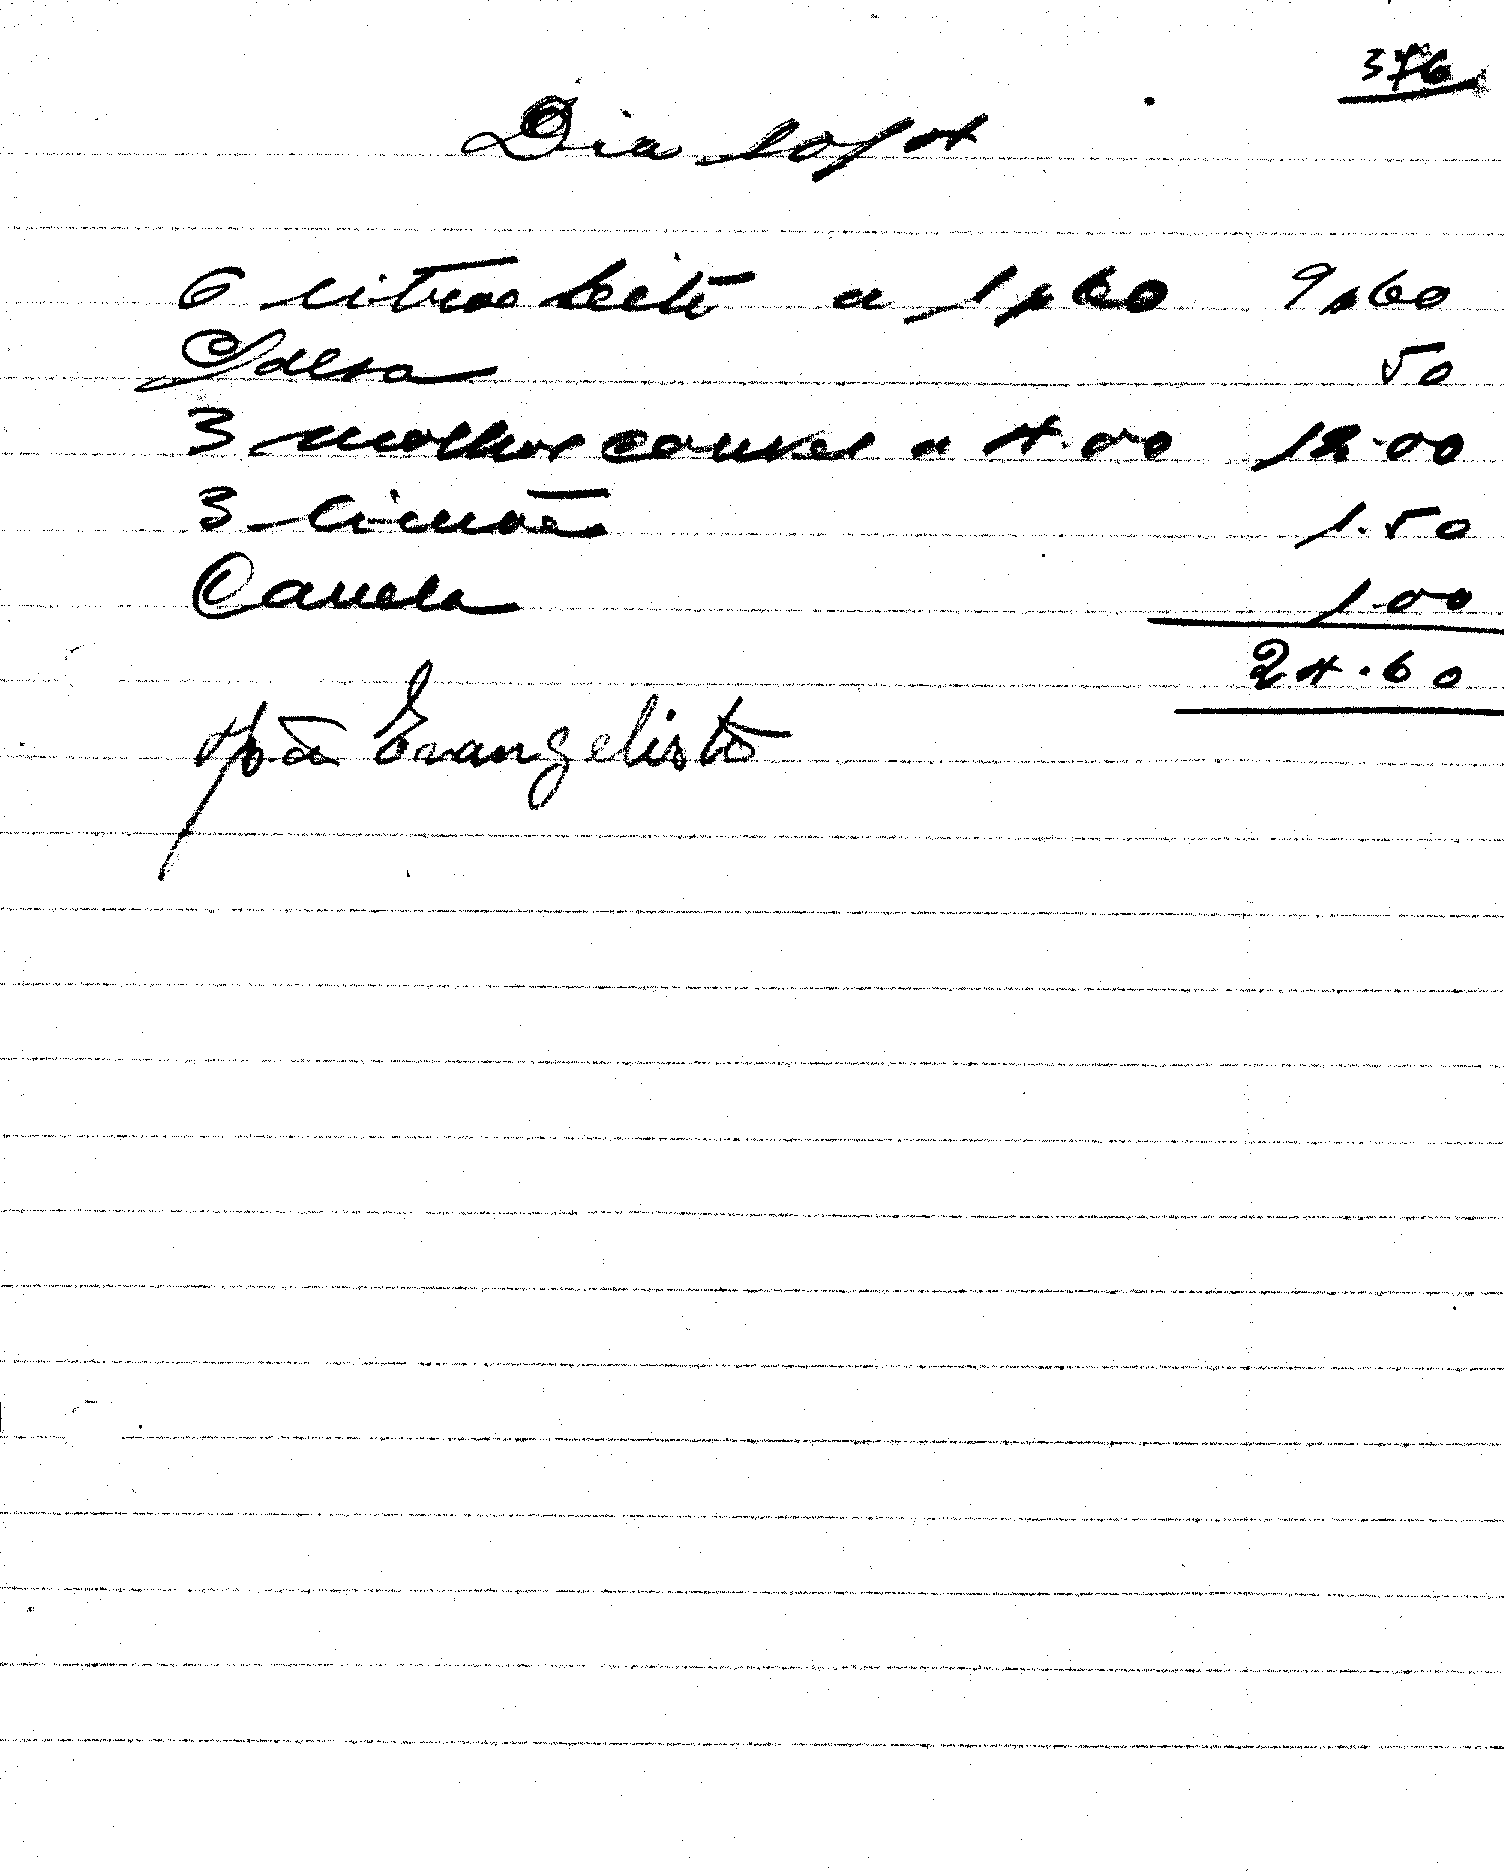 376
Dia 10/4
6 litros leite a 1$60 9$60
Salsa 50
3 molhos couves a 4.00 12.00
3 limões 1.50
Canela 1.00
24.60
João Evangelista